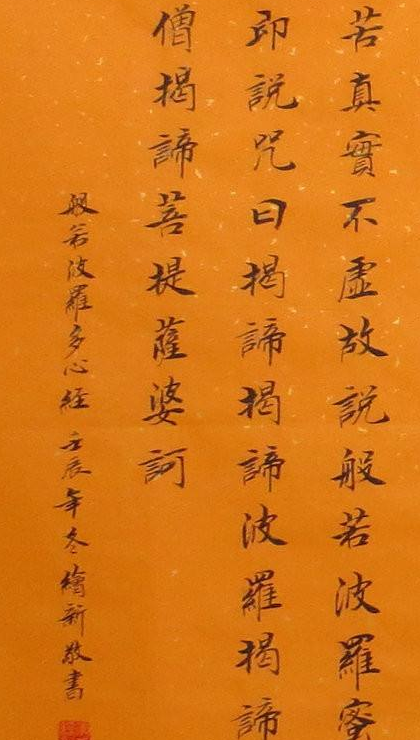 苦真實不虛故說般若波羅蜜
即說咒曰揭諦揭諦波羅揭諦
僧揭諦菩提薩婆訶
般若波羅多心経 壬辰年冬繪新敬書